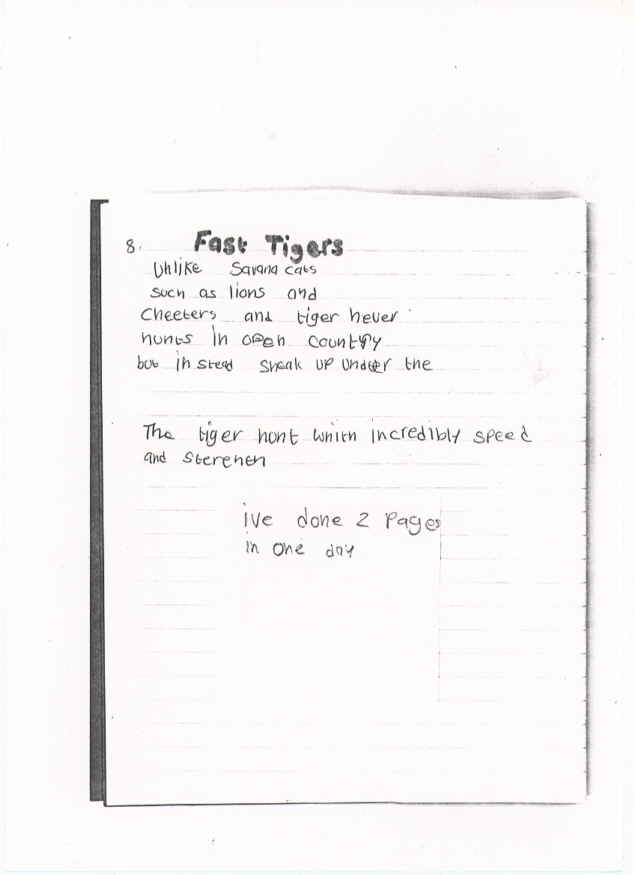 8. Fast Tigers
Unlike Savana cats
such as lions and
Cheeters and tiger never
hunts in open country
but in stead sneak up undter the
The tiger hont whith incredibly speed
and sterenth
ive done 2 pages
in one day